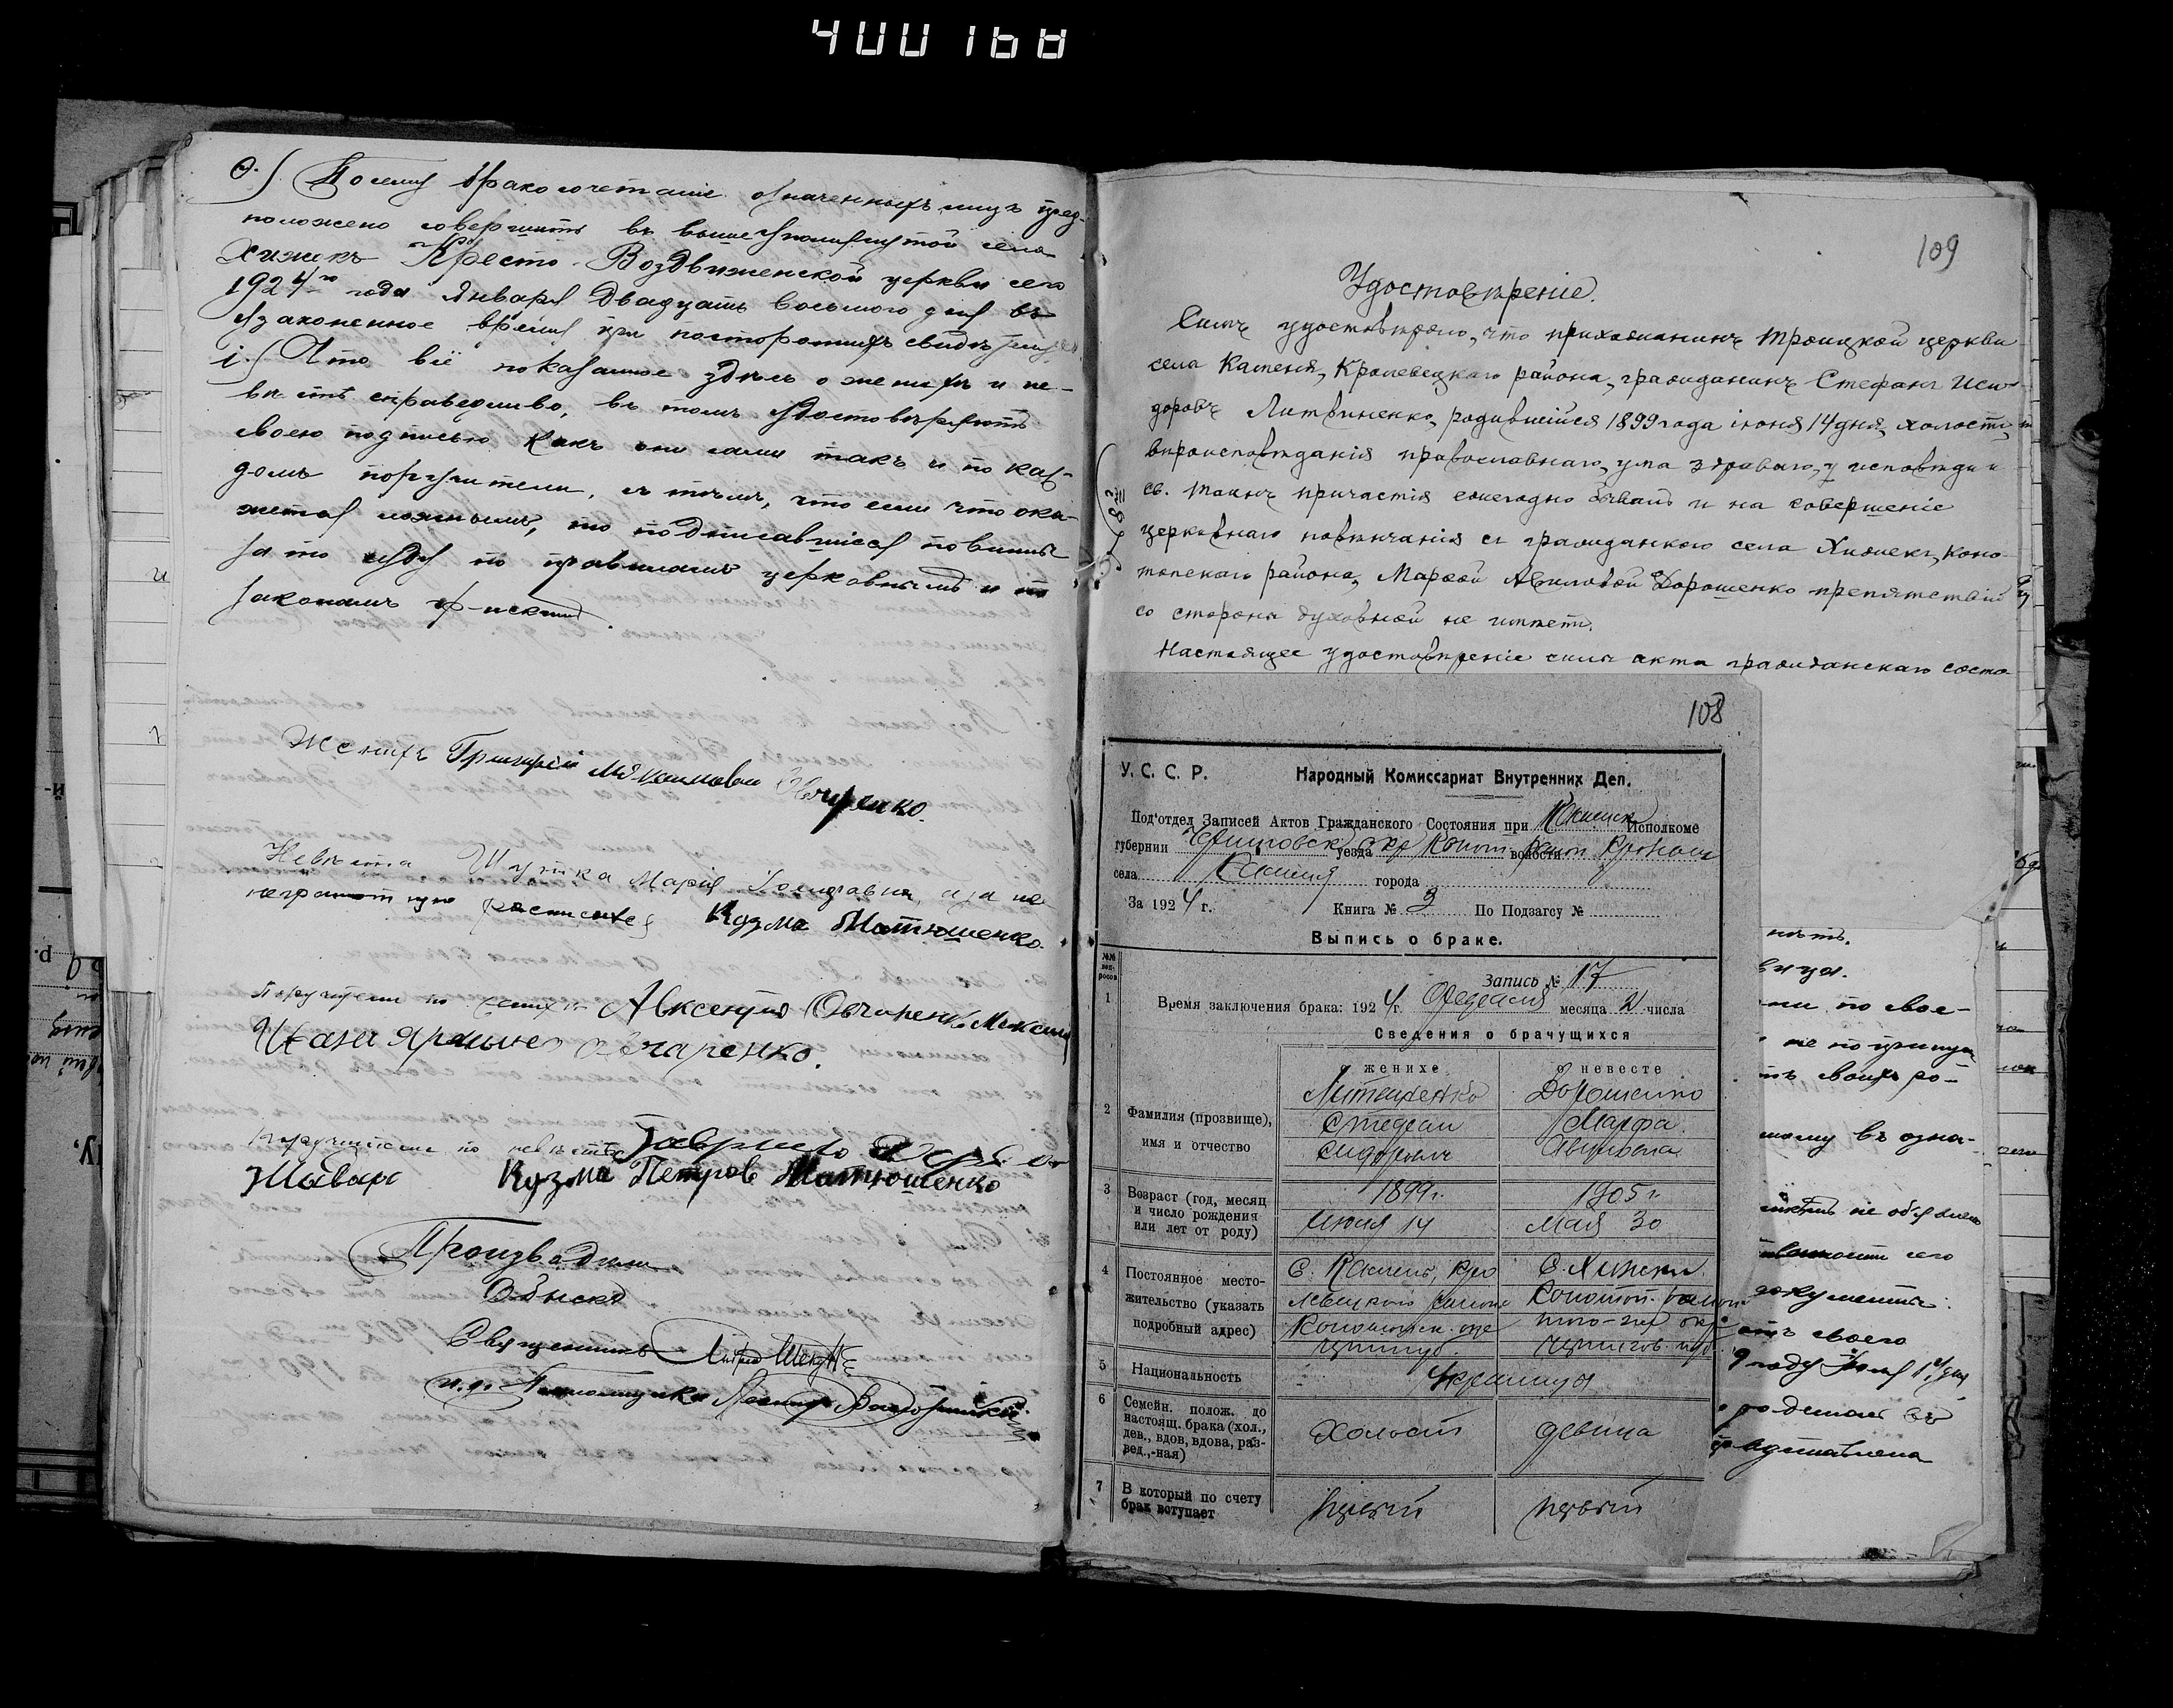 4000168
Ѳ.) Посему бракосочетаніе означенныхъ лицъ пред-
положено совершить въ вышеупомянутой села
Хижекъ Кресто-Воздвиженской церкви сего
1924го года Января двадцать восьмого дня въ
узаконенное время при постороннихъ свидѣтеляхъ
і.) Что всё показанное здѣсь о женихѣ и не-
вѣстѣ справедливо, въ томъ удостовѣряютъ
своею подписью какъ они сами такъ и по каж-
домъ поручители, съ тѣмъ, что если что ока-
жется ложнымъ, то подписавшіеся повинны
за то суду по правиламъ церковнымъ и по
законамъ
Женихъ Григорій Овчаренко.
Невѣста Марія а за не-
неграмотную росписался Кузма Матюшенко
Поручители по женихѣ Авксентій Овчаренко
Овчаренко.
Поручители по невѣстѣ Гавриило
Кузма Петров Матюшенко
Производили
Обыскъ
Священникъ
и.д. Псаломщика
109
Удостовѣреніе.
Симъ удостовѣряю, что прихожанинъ Троицкой церкви
села Каменя, Кролевецкаго района, гражданинъ Стефанъ Иси-
доровъ Литвиненко, родившійся 1899 года іюня 14 дня, холостъ,
вѣроисповѣданія православнаго, ума здраваго, у исповѣди и
св. таинъ причастія ежегодно бывалъ и на совершеніе
церковнаго повѣнчанія съ гражданкою села Хижекъ, Коно-
топскаго района, Марѳой Авиловой Дорошенко препятствій
со стороны духовной не имѣетъ.
Настоящее удостовѣреніе силы акта гражданскаго состо-
108
У. С. С. Р. Народный Комиссариат Внутренних Дел.
Под'отдел Записей Актов Гражданского Состояния при Каменск Исполкоме
губернии Черниговск уезда окр Коноп волости район Кролевец
села Каменя города
За 1924 г. Книга № 3 По Подзагсу №
Выпись о браке.
№№ вопросов
Запись № 17
1 Время заключения брака: 1924 г. Февраля месяца 2 числа
Сведения о брачущихся
женихе о невесте
2 Фамилия (прозвище), Литвиненко Дорошенко
имя и отчество Стефан Марфа
Сидоров Авиловна
3 Возраст (год, месяц 1899 г. 1905 г.
и число рождения
или лет от роду) Июня 14 Мая 30
4 Постоянное место- С. Камень, Кро С. Хижки
жительство (указать левецкого района Конотоп. район
подробный адрес) Конотопск. окр
Черниг. губ. Чернигов. губ.
5 Национальность Украинцы
6 Семейн. полож. до
настоящ. брака (хол., Холост девица
дев., вдов, вдова, раз-
вед.,-ная)
7 В который по счету
брак вступает первый первый
по свое-
не по принуж
своихъ ро-
въ озна-
не объявлено
сего
документы:
своего
году Іюня 14 дня